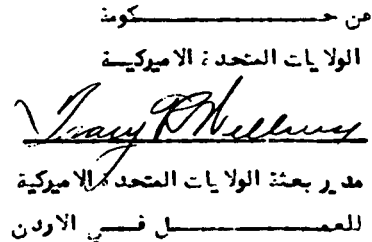 عن حكومة
الولايات المتحدة الاميركية
مدير بعثة الولايات المتحدة الاميركية
للعمل في الاردن